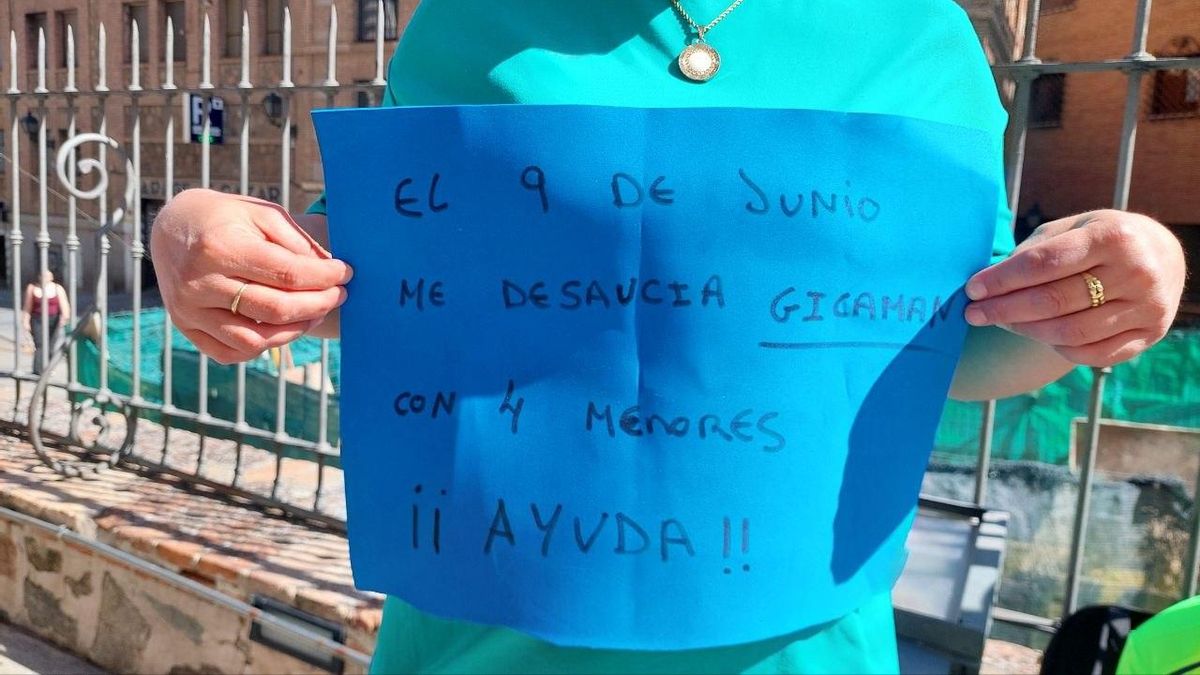 EL 9 DE JUNIO
ME DESAUCIA GICAMAN
CON 4 MENORES
¡¡ AYUDA !!
P